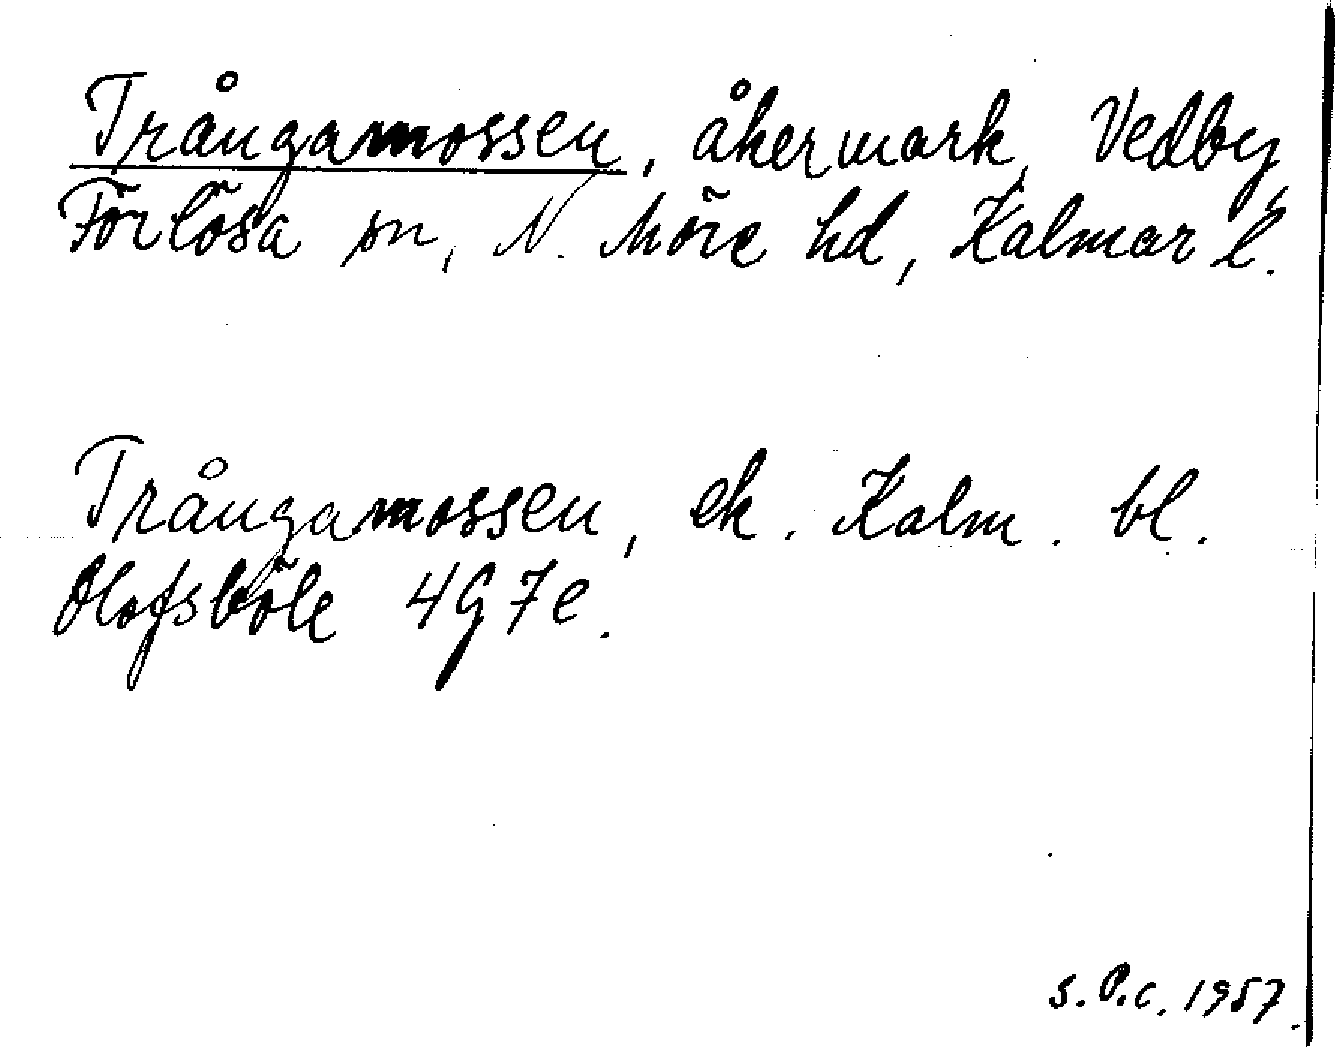 Trångamossen, åkermark, Vedby,
Förlösa sn, N. Möre hd, Kalmar l.
Trångamossen, ek. Kalm. bl.
Olofsböle 4G7e.
S.P.C. 1957.